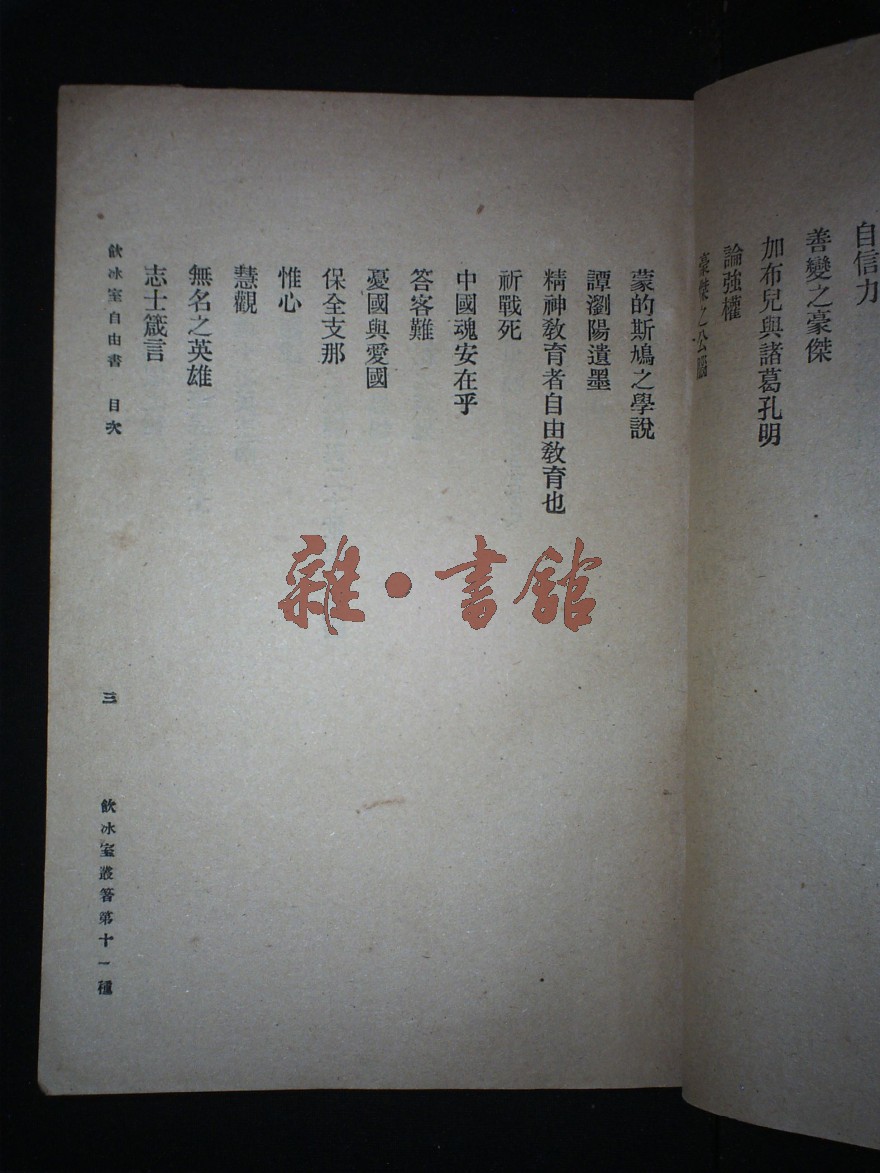 自信力
善變之豪傑
加布兒與諸葛孔明
論強權
豪傑之公腦
蒙的斯鳩之學說
譚瀏陽遺墨
精神教育者自由教育也
祈戰死
中國魂安在乎
答客難
憂國與愛國
保全支那
惟心
慧觀
無名之英雄
志士箴言
飲冰室自由書 目次
三
飲冰室叢著第十一種
雜·書館